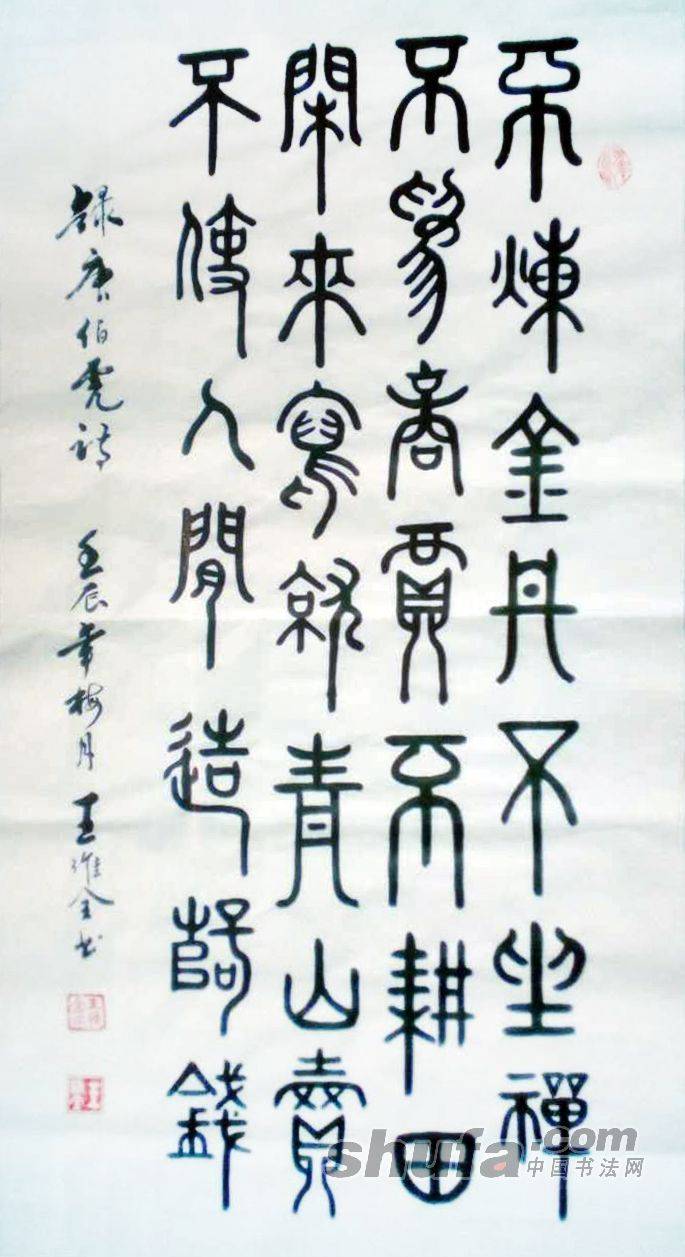 不煉金丹不坐禪
不爲商賈不耕田
閑來寫就青山賣
不使人閒造孽錢
錄唐伯虎詩 壬辰年梅月 王維全書
shufa.com
中国书法网